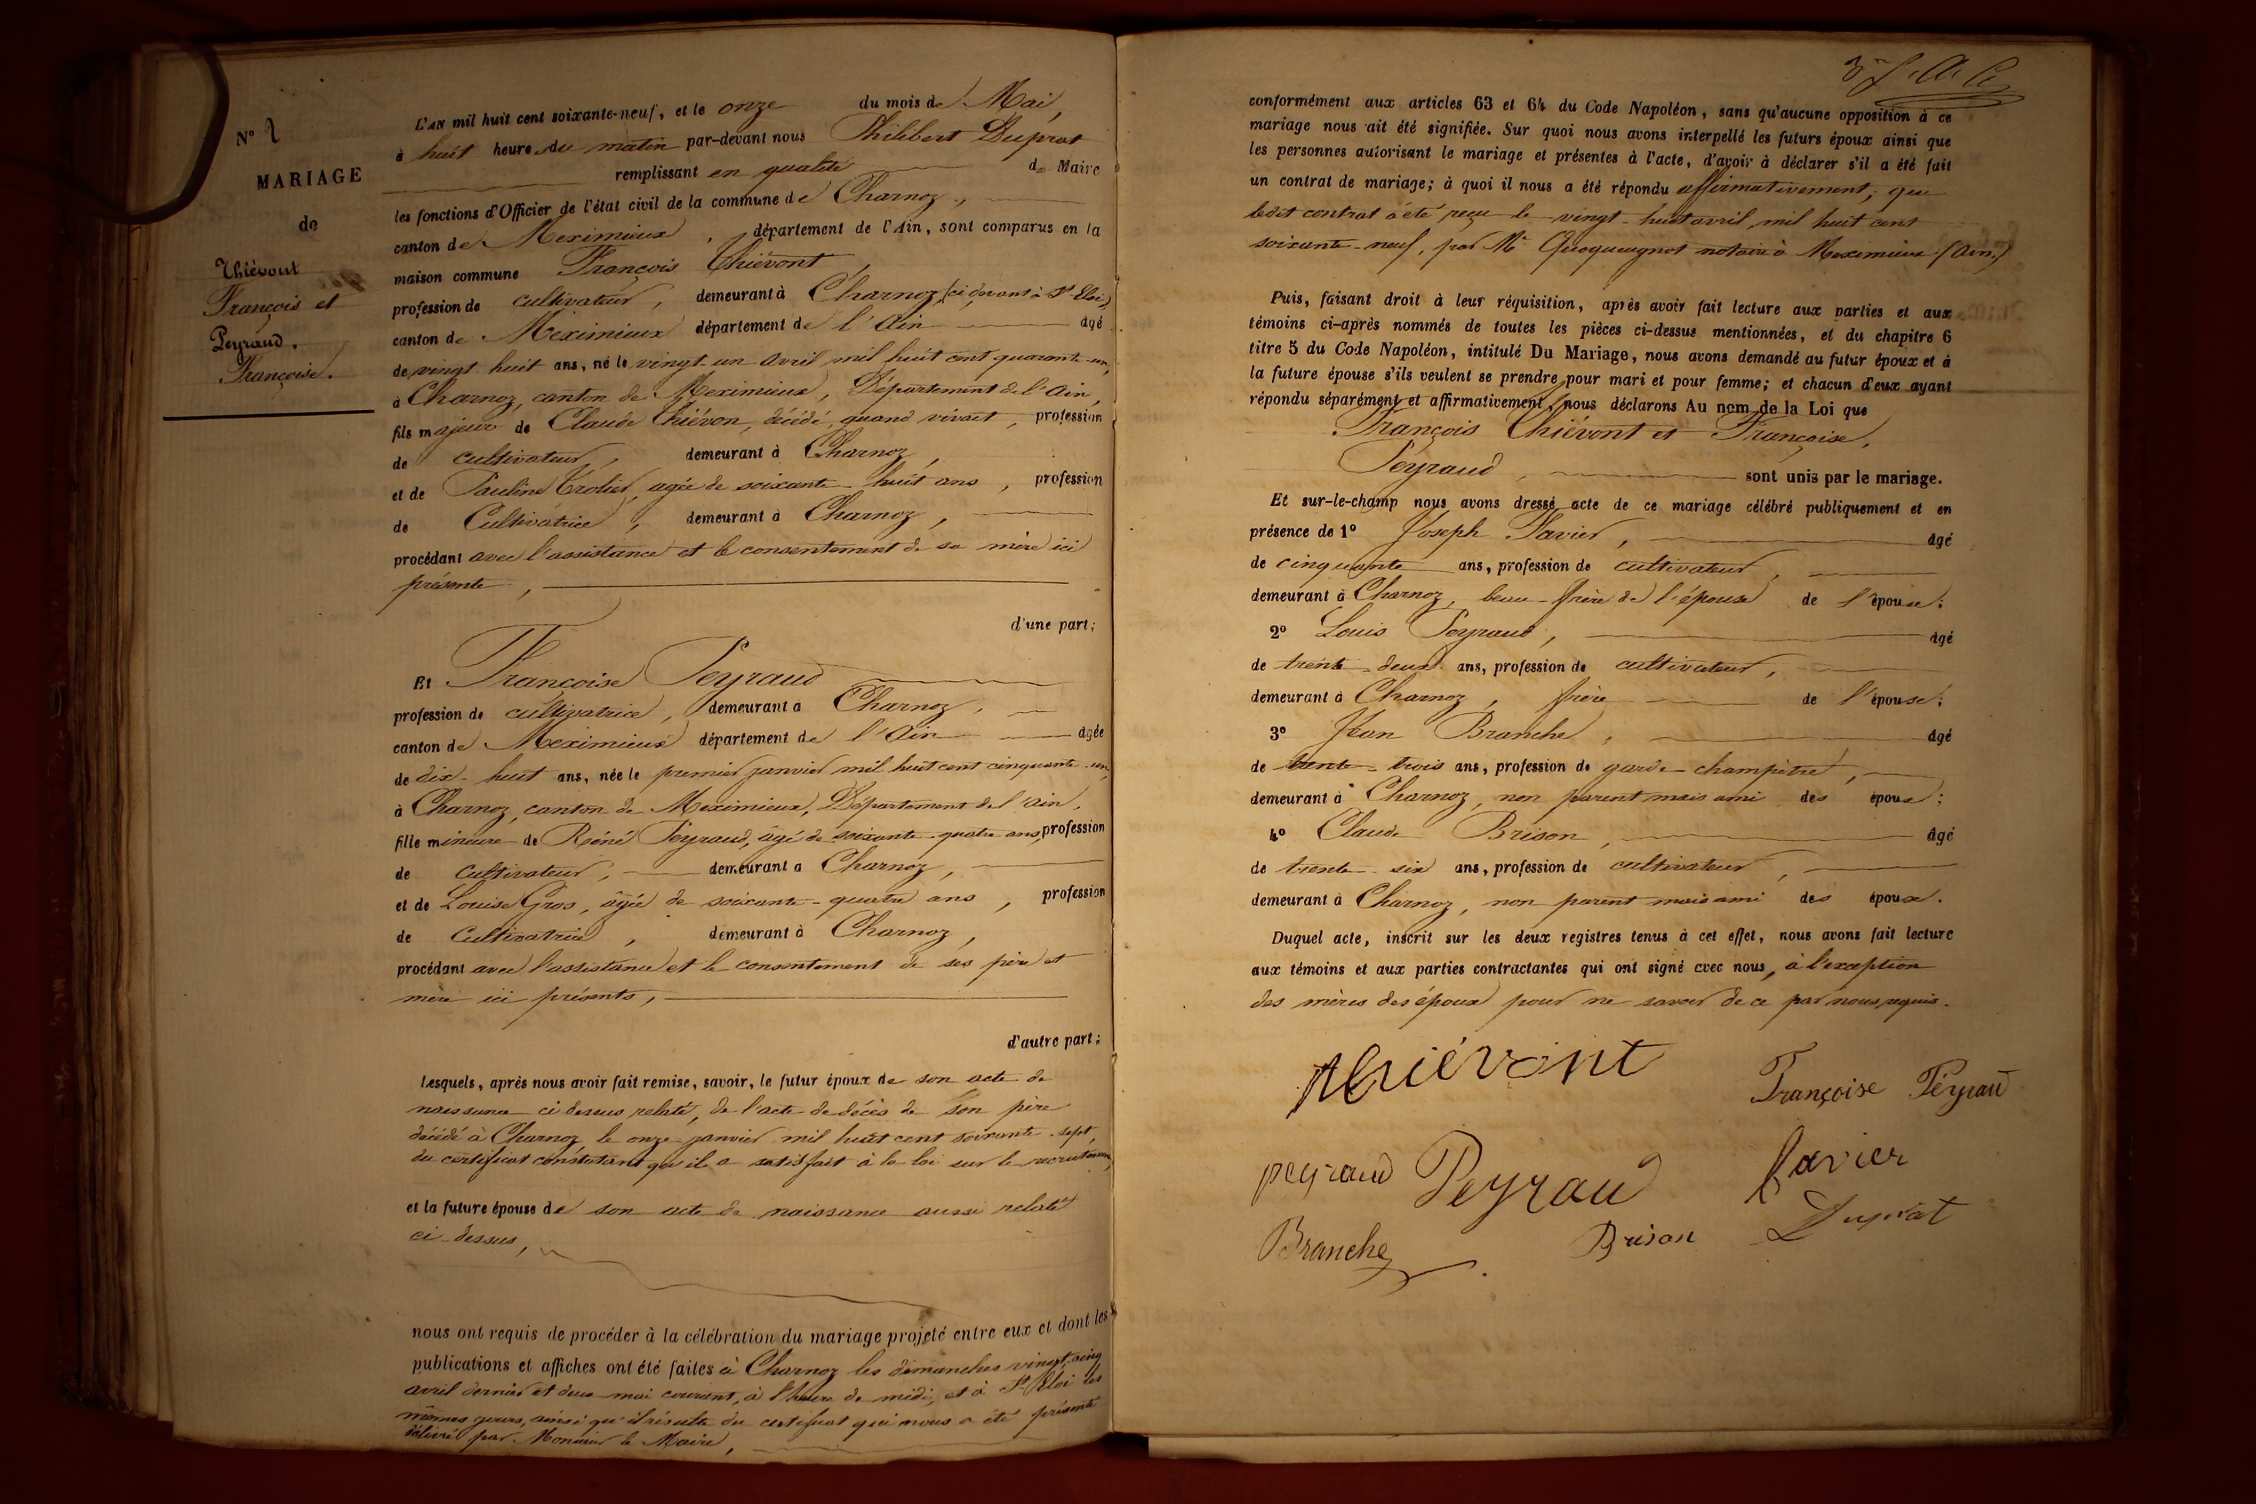 N° 2
MARIAGE
de
Thiévont
François et
Peyraud.
Françoise.
L'AN mil huit cent soixante-neuf, et le onze du mois de Mai,
à huit heure du matin par-devant nous Philibert Duprat
remplissant en qualité de Maire
les fonctions d'Officier de l'état civil de la commune de Charnoz,
canton de Meximieux, département de l'Ain, sont comparus en la
maison commune François Thiévont,
profession de cultivateur, demeurant à Charnoz, (ci-devant à St Eloi)
canton de Meximieux département de l'Ain âgé
de vingt huit ans, né le vingt-un avril mil huit cent quarante-un,
à Charnoz, canton de Meximieux, Département de l'Ain,
fils majeur de Claude Thiévon, décédé, quand vivait, profession
de cultivateur, demeurant à Charnoz,
et de Pauline Trolier, agée de soixante huit ans, profession
de Cultivatrice, demeurant à Charnoz,
procédant avec l'assistance et le consentement de sa mère ici
présente,
d'une part;
Et Françoise Peyraud
profession de cultivatrice, demeurant a Charnoz,
canton de Meximieux département de l'Ain âgée
de dix-huit ans, née le premier janvier mil huit cent cinquante-un,
à Charnoz, canton de Meximieux, Département de l'Ain,
fille mineure de Réné Peyraud, âgé de soixante-quatre ans, profession
de cultivateur, demeurant a Charnoz,
et de Louise Gros, âgée de soixante-quatre ans, profession
de Cultivatrice, demeurant à Charnoz,
procédant avec l'assistance et le consentement de ses père et
mère ici présents,
d'autre part;
Lesquels, après nous avoir fait remise, savoir, le futur époux de son acte de
naissance ci dessus relaté, de l'acte de décès de son père
décédé à Charnoz le onze janvier mil huit cent soixante-sept,
du certificat constatant qu'il a satisfait à la loi sur le recrutement,
et la future épouse de son acte de naissance aussi relaté
ci-dessus,
nous ont requis de procéder à la célébration du mariage projeté entre eux et dont les
publications et affiches ont été faites à Charnoz les dimanches vingt cinq
avril dernier et deux mai courant, à l'heure de midi, et à St Eloi les
mêmes jours, ainsi qu'il résulte du certificat qui nous a été présenté
délivré par Monsieur le Maire,
conformément aux articles 63 et 64 du Code Napoléon, sans qu'aucune opposition à ce
mariage nous ait été signifiée. Sur quoi nous avons interpellé les futurs époux ainsi que
les personnes autorisant le mariage et présentes à l'acte, d'avoir à déclarer s'il a été fait
un contrat de mariage; à quoi il nous a été répondu affirmativement, que
ledit contrat a été reçu le vingt-huit avril, mil huit cent
soixante-neuf, par Me notaire à Meximieux (Ain.)
Puis, faisant droit à leur réquisition, après avoir fait lecture aux parties et aux
témoins ci-après nommés de toutes les pièces ci-dessus mentionnées, et du chapitre 6
titre 5 du Code Napoléon, intitulé Du Mariage, nous avons demandé au futur époux et à
la future épouse s'ils veulent se prendre pour mari et pour femme; et chacun d'eux ayant
répondu séparément et affirmativement, nous déclarons Au nom de la Loi que
François Thiévont et Françoise,
Peyraud sont unis par le mariage.
Et sur-le-champ nous avons dressé acte de ce mariage célébré publiquement et en
présence de 1° Joseph Savier, âgé
de cinquante ans, profession de cultivateur,
demeurant à Charnoz, beau-frère de l'épouse de l'épouse;
2° Louis Peyraud, âgé
de trente-deux ans, profession de cultivateur,
demeurant à Charnoz, frère de l'épouse;
3° Jean Branche, âgé
de trente-trois ans, profession de garde-champêtre,
demeurant à Charnoz, non parent mais ami des époux;
4° Claude Brison, âgé
de trente-six ans, profession de cultivateur,
demeurant à Charnoz, non parent mais ami des époux.
Duquel acte, inscrit sur les deux registres tenus à cet effet, nous avons fait lecture
aux témoins et aux parties contractantes qui ont signé avec nous, à l'exception
des mères des époux pour ne savoir de ce par nous requis.
Thiévont
Françoise Péyraud
peyraud Peyraud Savier
Branche Brison Duprat